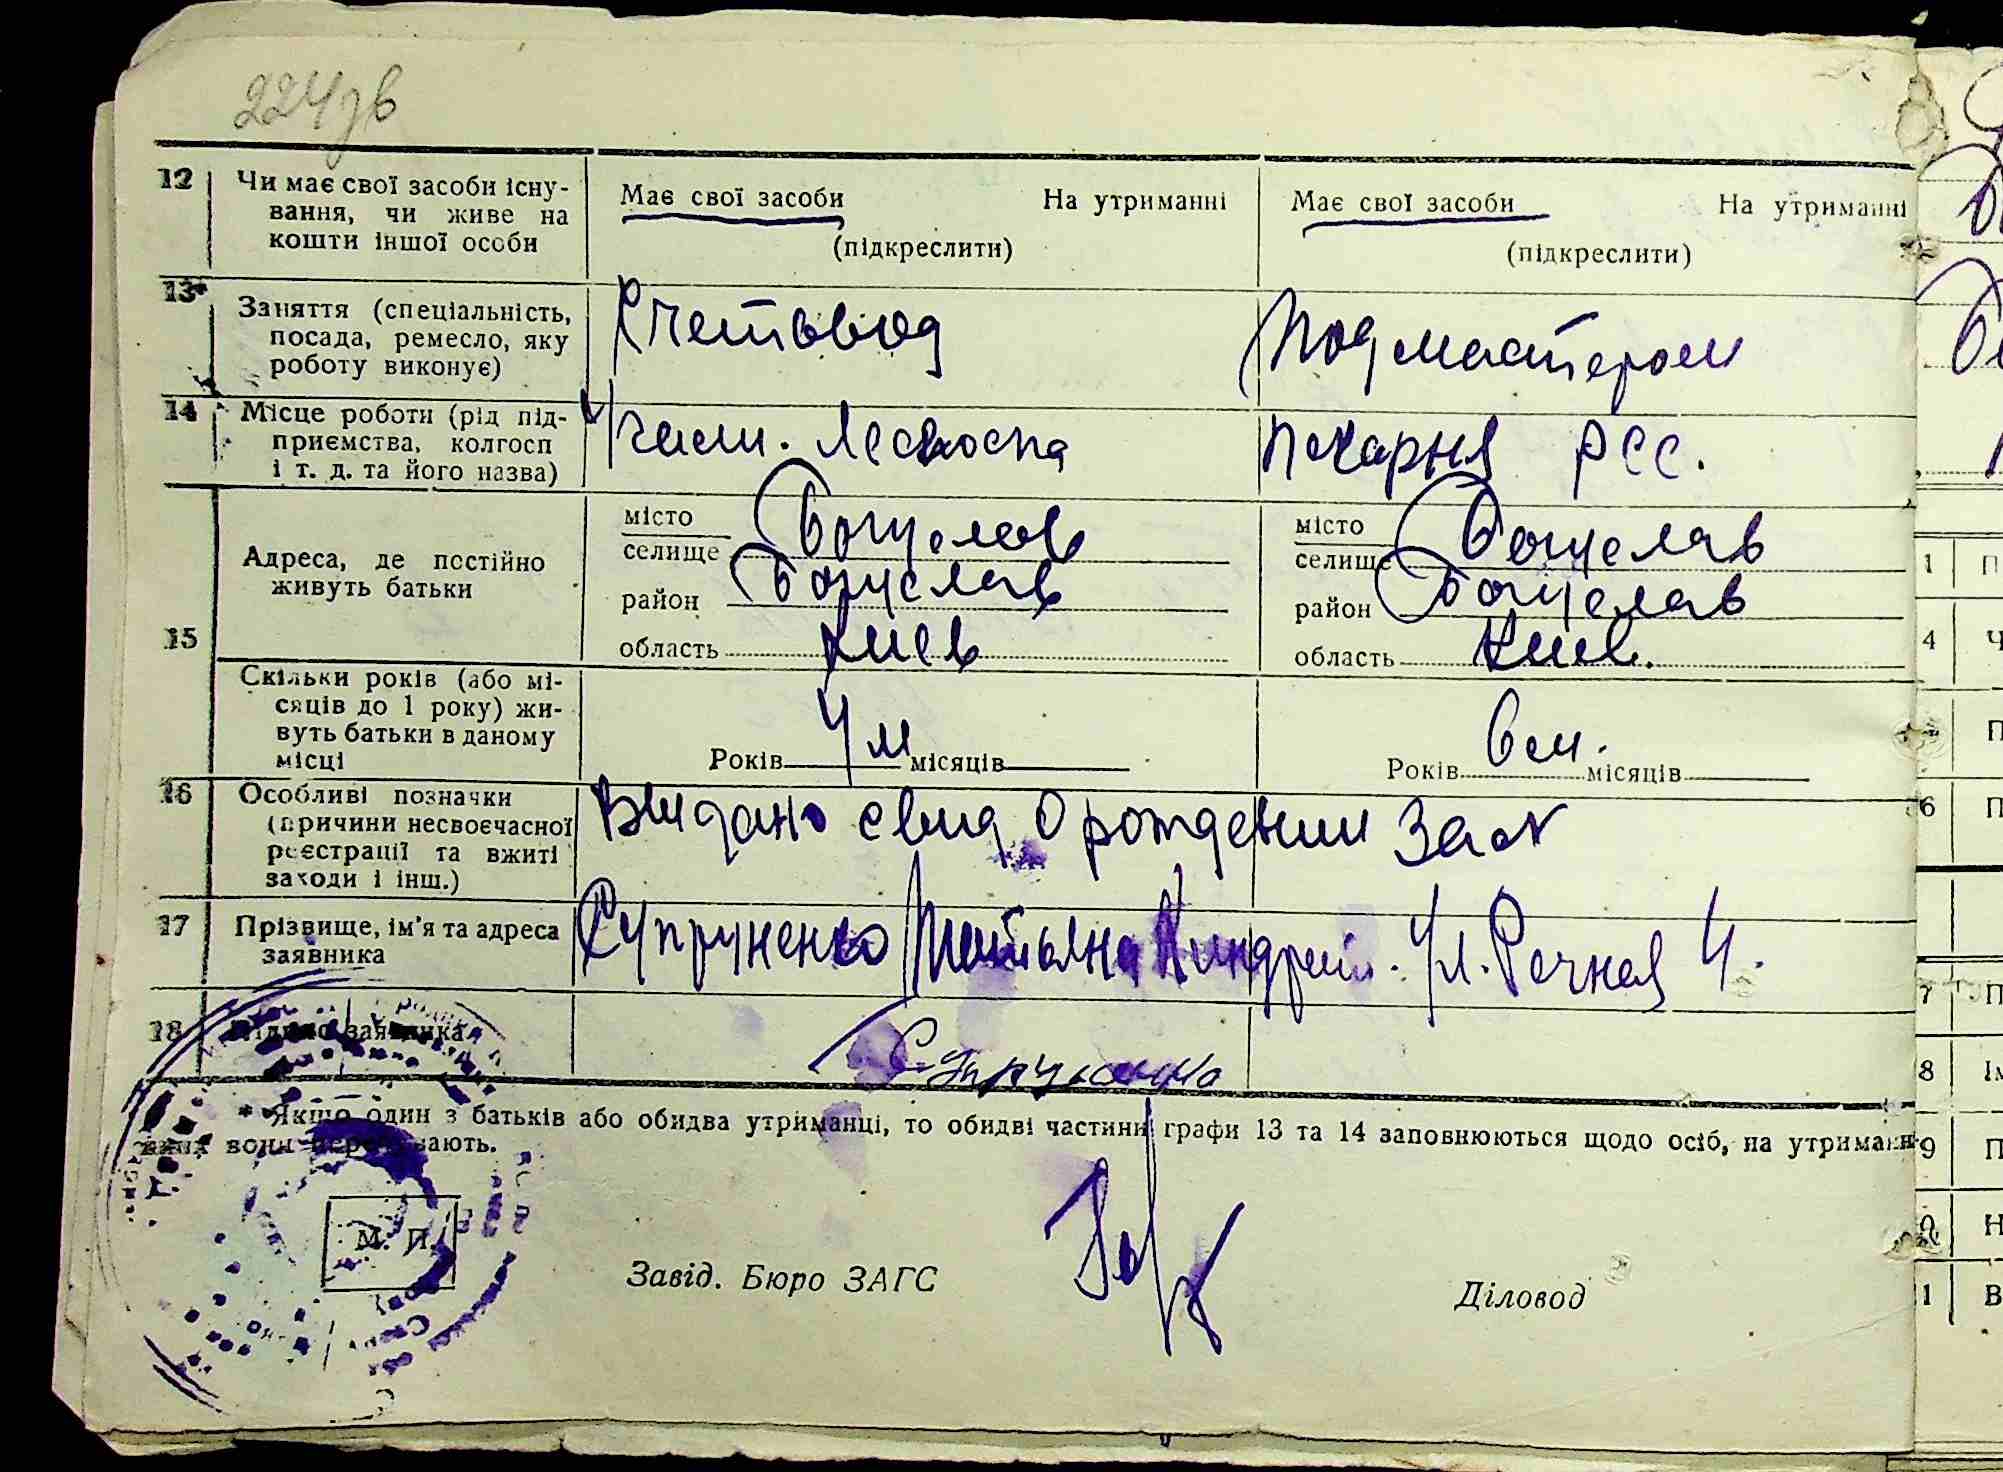 224зв
12 Чи має свої засоби існу- Має свої засоби На утриманні Має свої засоби На утриманні
вання, чи живе на
кошти іншої особи (підкреслити) (підкреслити)
13* Заняття (спеціальність, Счетовод Подмастером
посада, ремесло, яку
роботу виконує)
14 Місце роботи (рід під- Лесхоспа Пекарня РСС.
приємства, колгосп
і т. д. та його назва)
15 Адреса, де постійно місто Богуслав місто Богуслав
живуть батьки селище селище
район Богуслав район Богуслав
область Киев область Киев.
Скільки років (або мі-
сяців до 1 року) жи-
вуть батьки в даному
місці Років 4 м місяців Років 6 м. місяців
16 Особливі позначки Видано свид о рождении
(причини несвоєчасної
реєстрації та вжиті
заходи і інш.)
17 Прізвище, ім'я та адреса Супруненко Татьяна ул. Речная 4.
заявника
18 Підпис заявника Супруненко
* Якщо один з батьків або обидва утриманці, то обидві частини графи 13 та 14 заповнюються щодо осіб, на утриман-
вони перебувають.
М. П.
Завід. Бюро ЗАГС Діловод
1 П
4 Ч
П
6 П
7 П
8 Ім
9 П
0 Н
1 В